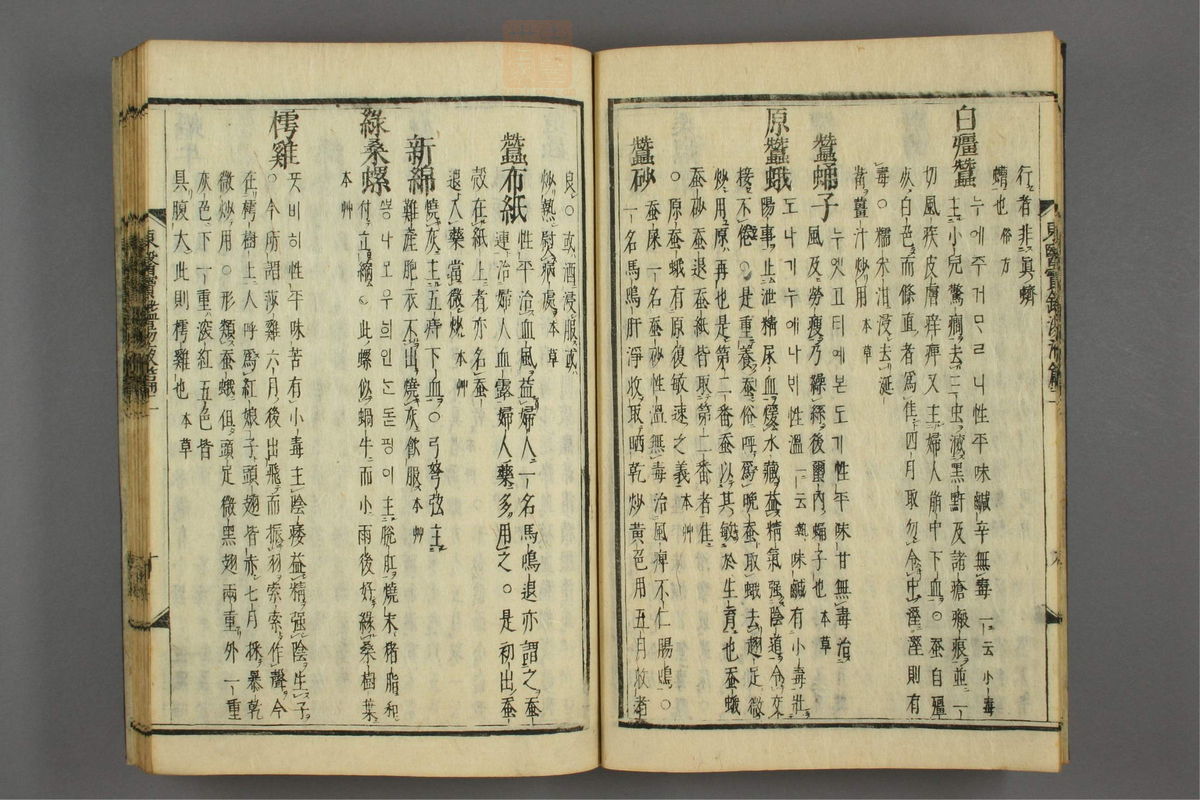 行者非眞蠐
螬也俗方
白殭蠶 누에주거ᄆᆞᄅᆞ니性平味鹹辛無毒一云小毒
主小兒驚癎去三虫滅黑䵟及諸瘡瘢痕並一
切風疾皮膚痒痺又主婦人崩中下血○蚕自殭
死白色而條直者爲佳四月取勿令中溼溼則有
毒○糯米泔浸去涎
嘴薑汁炒用本草
蠶蛹子 누엣고티에본도기性平味甘無毒治
風及勞瘦乃繰絲後蠒內蛹子也本草
原蠶蛾 도나기누에나븨性溫一云熱味鹹有小毒壯
陽事止泄精尿血煖水藏益精氣强陰道令交
接不倦○是重養蚕俗呼爲晩蚕取蛾去翅足微
炒用原再也是第二番蚕以其敏於生育也蚕蛾
蚕砂蚕退蚕紙皆取第二番者佳
○原蚕蛾有原復敏速之義本艸
蠶砂 蚕屎一名蚕砂性溫無毒治風痺不仁腸鳴○
一名馬鳴肝淨收取晒乾炒黃色用五月收者
良○或酒浸服或
炒熱熨病處本草
蠶布紙 性平治血風益婦人一名馬鳴退亦謂之蚕
連治婦人血露婦人藥多用之○是初出蚕
殼在紙上者亦名蚕
退入藥當微炒本艸
新綿 燒灰主五痔下血○弓弩弦主
難產胞衣不出燒灰飮服本艸
綠桑螺 ᄲᅩᆼ나모우희인ᄂᆞᆫ이主脫肛燒末猪脂和
付立縮○此螺似蝸牛而小雨後好緣桑樹葉
本艸
樗雞 뵈ᄧᆞᆼ이性平味苦有小毒主陰痿益精强陰生子
○今所謂莎雞六月後出飛而振羽索索作聲今
在樗樹上人呼爲紅娘子頭翅皆赤七月採暴乾
微炒用○形類蚕蛾但頭足微黑翅兩重外一重
灰色下一重深紅五色皆
具腹大此則樗雞也本草
東醫寶鑑湯液篇二